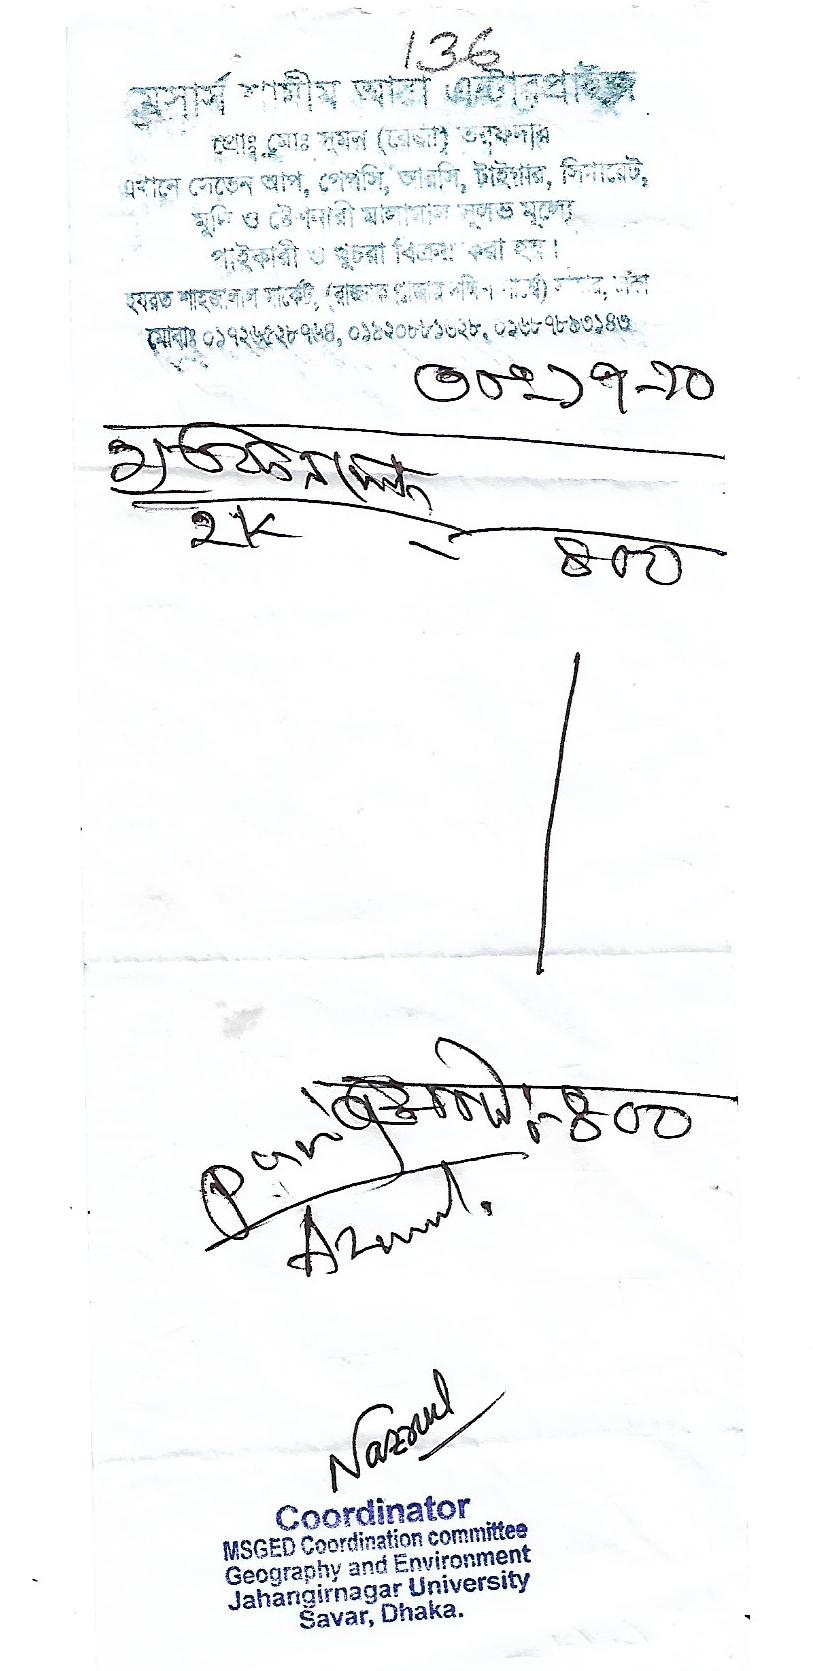 136
মেসার্স শামীম আরা এন্টারপ্রাইজ
প্রোঃ মোঃ সুমন (রেজা) তরফদার
এখানে সেভেন আপ, পেপসি, আরসি, টাইগার, সিগারেট,
মুদি ও ষ্টেশনারী মালামাল সুলভ মূল্যে
পাইকারী ও খুচরা বিক্রয় করা হয়।
হযরত শাহজালাল মার্কেট, (রাজ্জাক প্লাজার দক্ষিণ পার্শ্বে) সাভার, ঢাকা
মোবাঃ ০১৭২৬৫২৮৭৬৪, ০১৯২০৮৮১৩২৮, ০১৬৮৭৮৯৩১৪৩
2K - ৪০০
৪০০
Paid
Nazrul
Coordinator
MSGED Coordination committee
Geography and Environment
Jahangirnagar University
Savar, Dhaka.